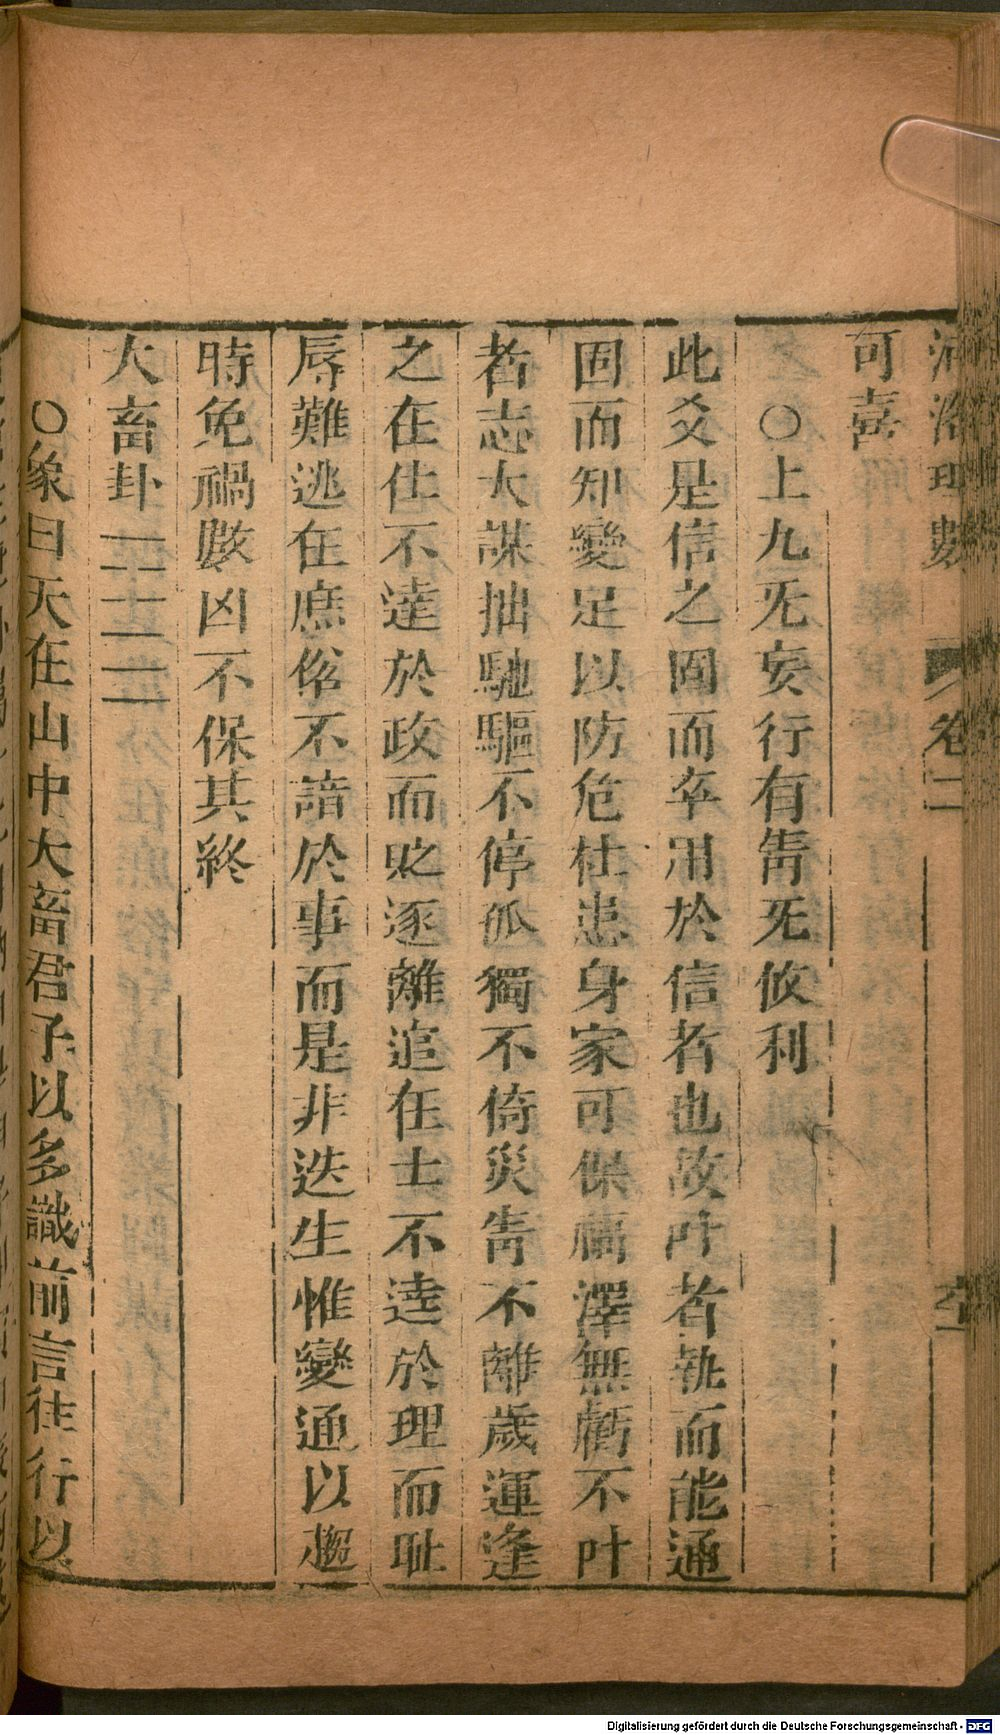 河洛理數 卷二
可喜
○上九无妄行有眚无攸利
此爻是信之固而卒用於信者也故叶者執而能通
固而知變足以防危杜患身家可保福澤無虧不叶
者志大謀拙馳驅不停孤獨不倚災眚不離歲運逢
之在仕不達於政而貶逐離追在士不達於理而耻
辱難逃在庶俗不諳於事而是非迭生惟變通以趨
時免禍賅凶不保其終
大畜卦
○象曰天在山中大畜君子以多識前言往行以
Digitalisierung gefördert durch die Deutsche Forschungsgemeinschaft - DFG